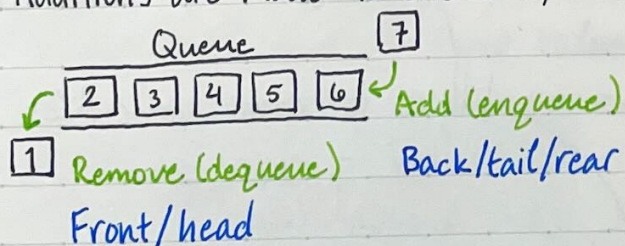 Queue
7
2 3 4 5 6
Add (enqueue)
1
Remove (dequeue)
Back/tail/rear
Front/head